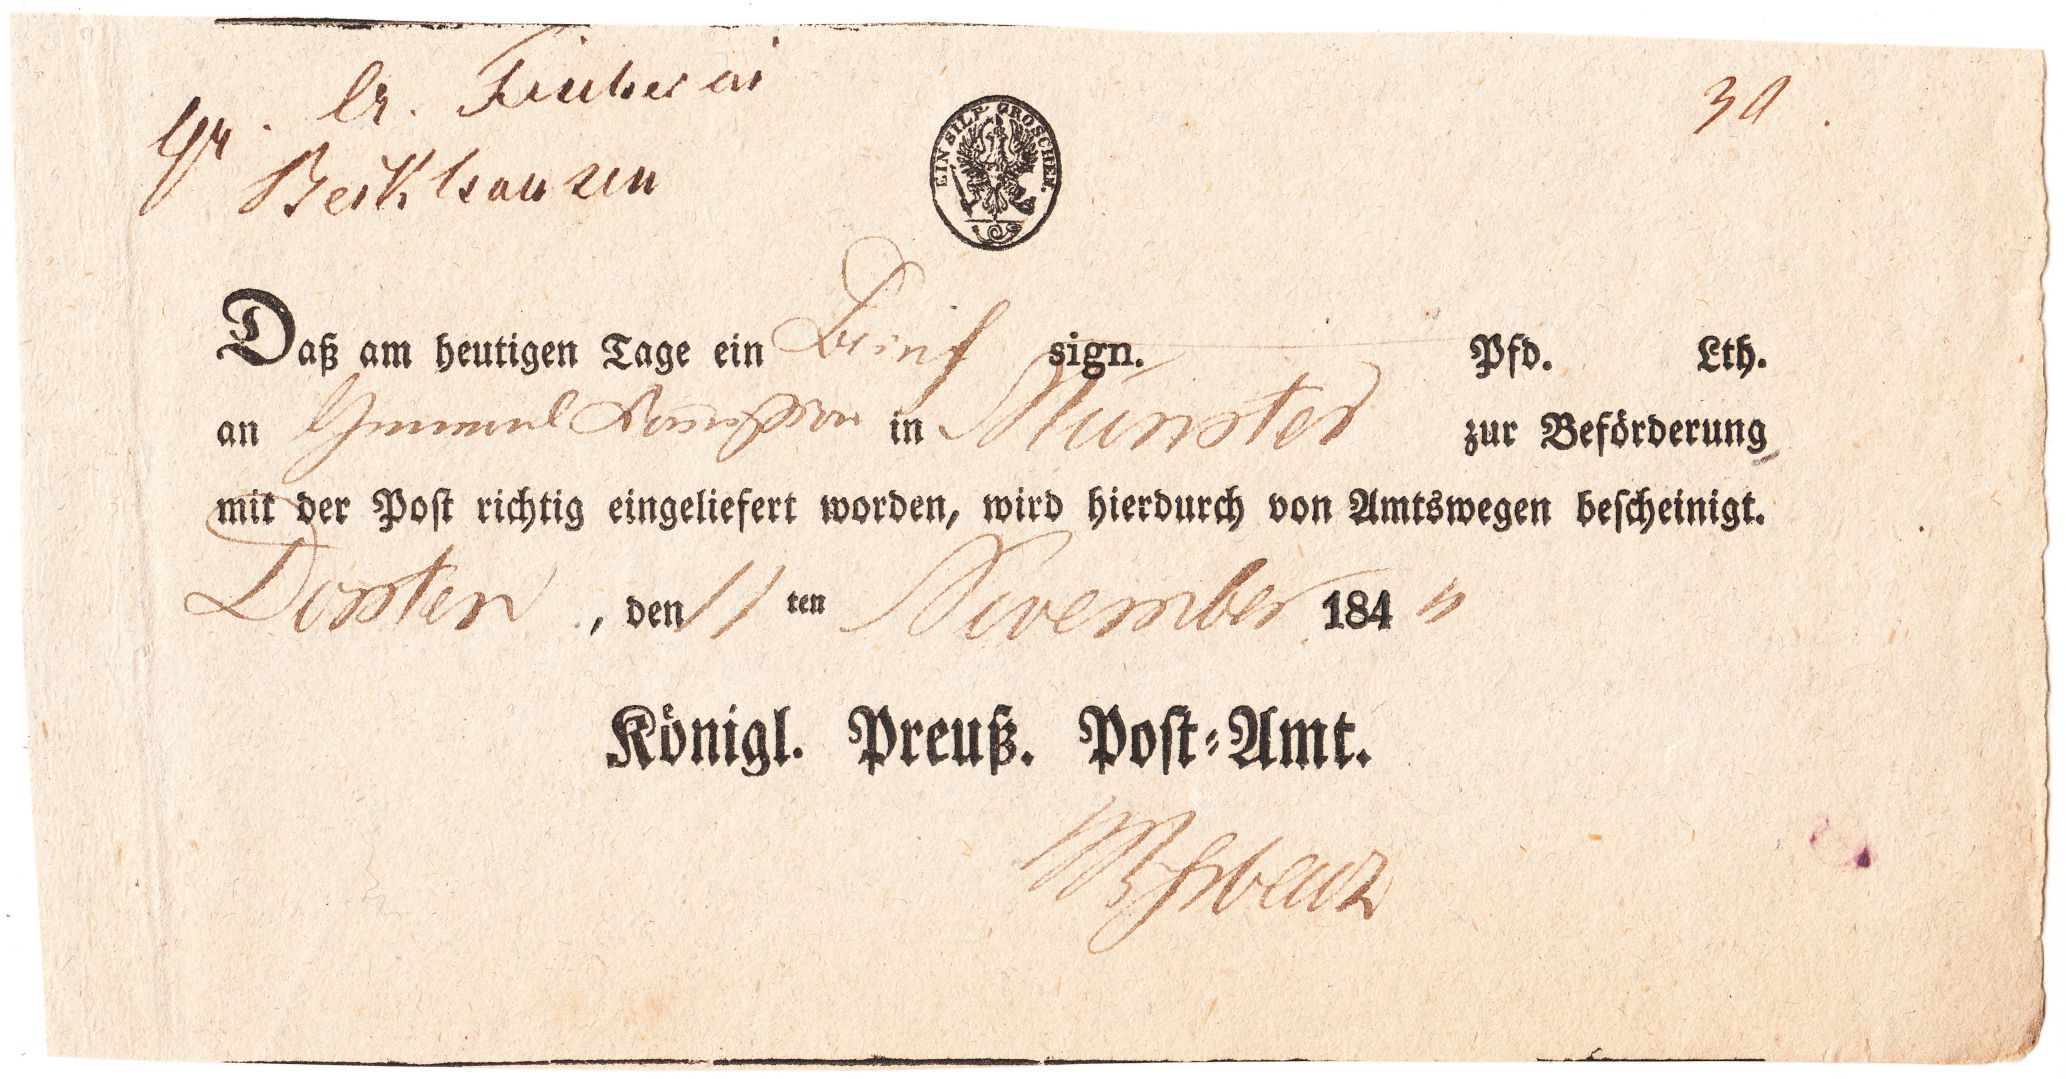 30.
Berkhausen
EIN SILB. GROSCHEN.
Daß am heutigen Tage ein Brief sign. Pfd. Lth.
an General in Münster zur Beförderung
mit der Post richtig eingeliefert worden, wird hierdurch von Amtswegen bescheinigt.
Dorsten, den 11 ten November 184
Königl. Preuß. Post-Amt.